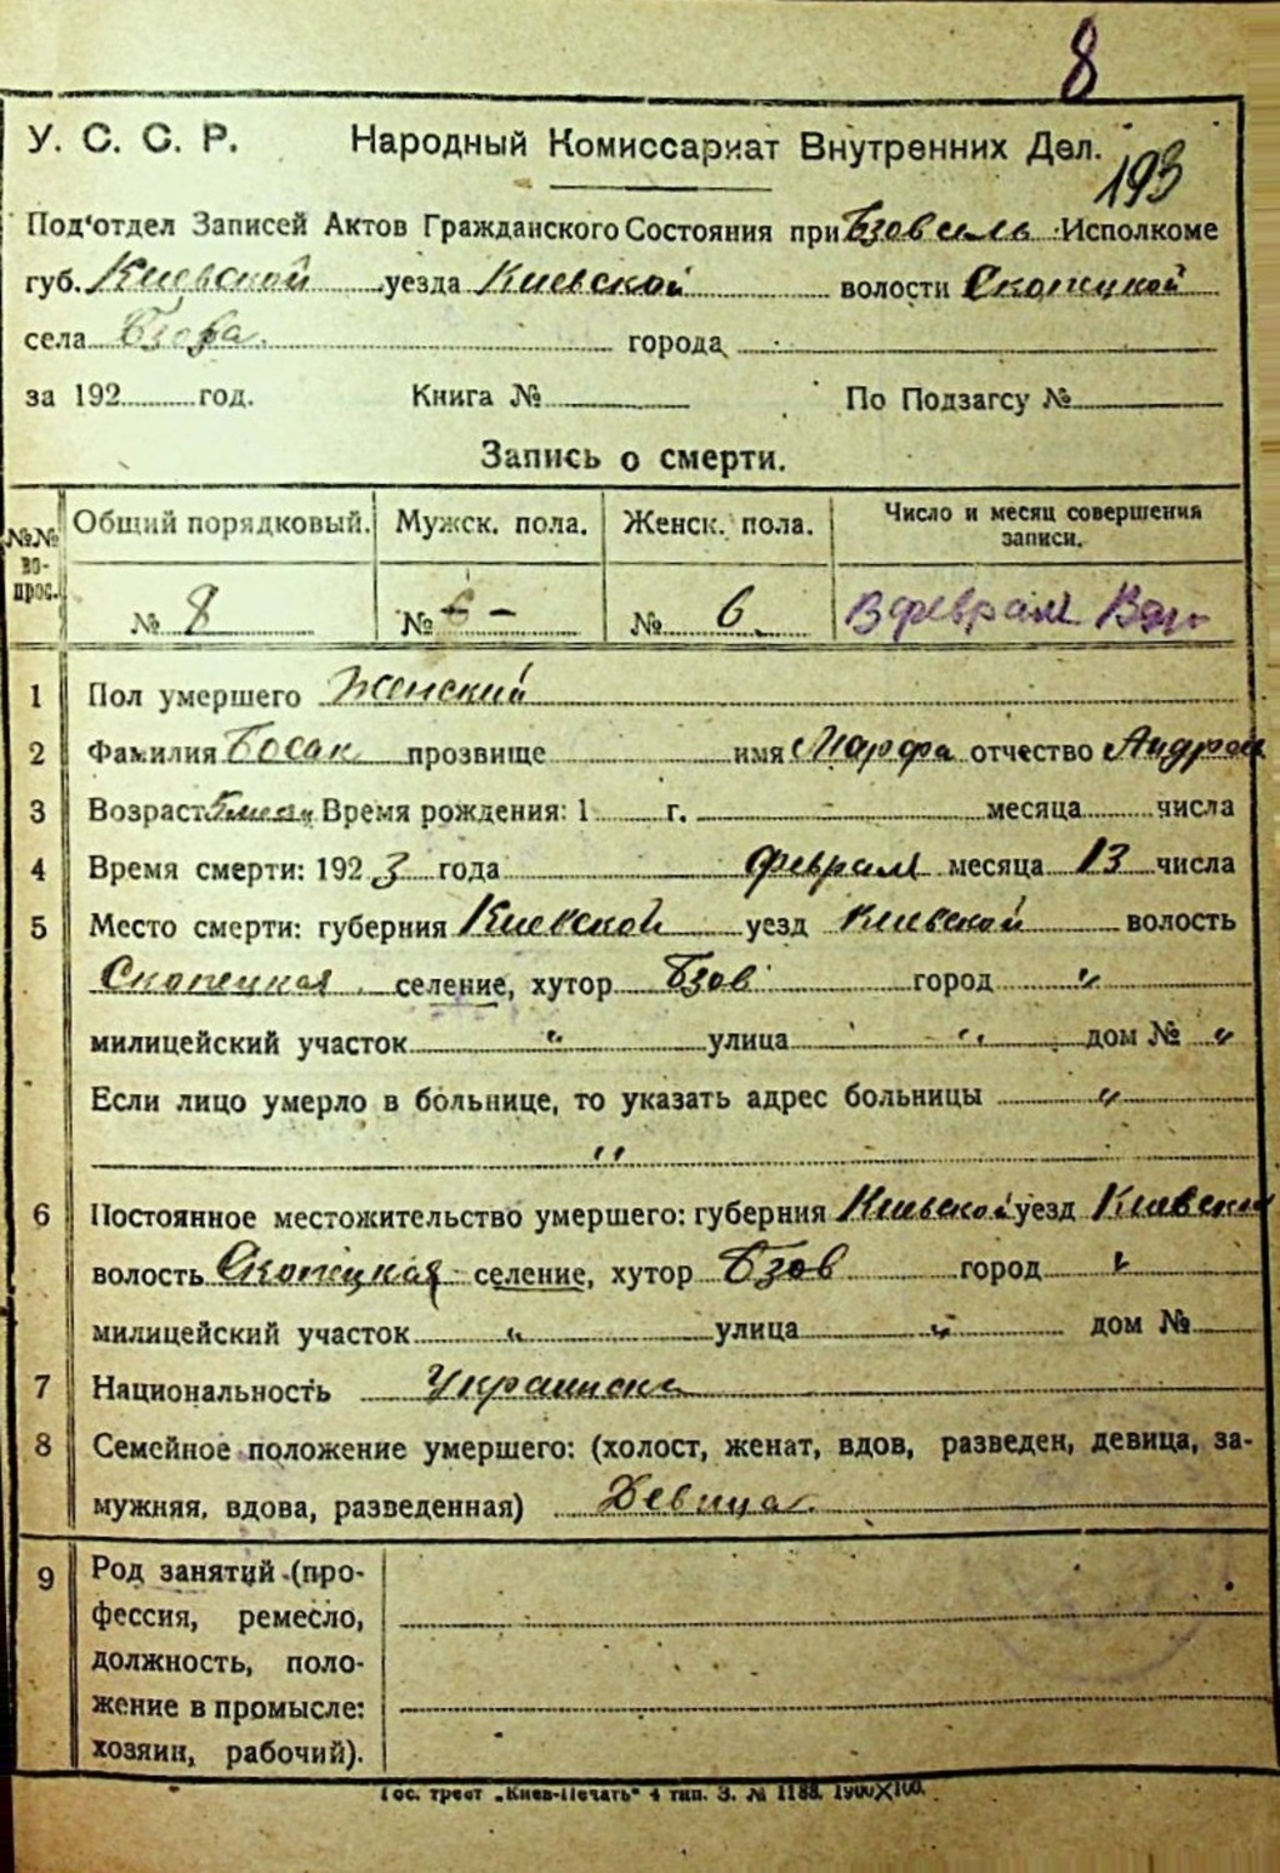 8
У. С. С. Р. Народный Комиссариат Внутренних Дел.
193
Под'отдел Записей Актов Гражданского Состояния при Бзов сель Исполкоме
губ. Киевской уезда Киевской волости Скопецкой
села Бзова. города
за 192 год. Книга № По Подзагсу №
Запись о смерти.
№№ вопрос. Общий порядковый. Мужск. пола. Женск. пола. Число и месяц совершения записи.
№ 8 № 6 - № 6. февраля
1 Пол умершего Женский
2 Фамилия Босак прозвище имя Марфа отчество Андрее
3 Возраст Время рождения: 1 г. месяца числа
4 Время смерти: 192 3 года февраля месяца 13 числа
5 Место смерти: губерния Киевской уезд Киевской волость
Скопецкая селение, хутор Бзов город "
милицейский участок " улица " дом № "
Если лицо умерло в больнице, то указать адрес больницы "
"
6 Постоянное местожительство умершего: губерния Киевской уезд Киевской
волость Скопецкая селение, хутор Бзов город "
милицейский участок " улица " дом №
7 Национальность Украинска
8 Семейное положение умершего: (холост, женат, вдов, разведен, девица, за-
мужняя, вдова, разведенная) Девица.
9 Род занятий (про-
фессия, ремесло,
должность, поло-
жение в промысле:
хозяин, рабочий).
Гос. трест „Киев-Печать" 4 тип. З. № 1188. 1900×100.